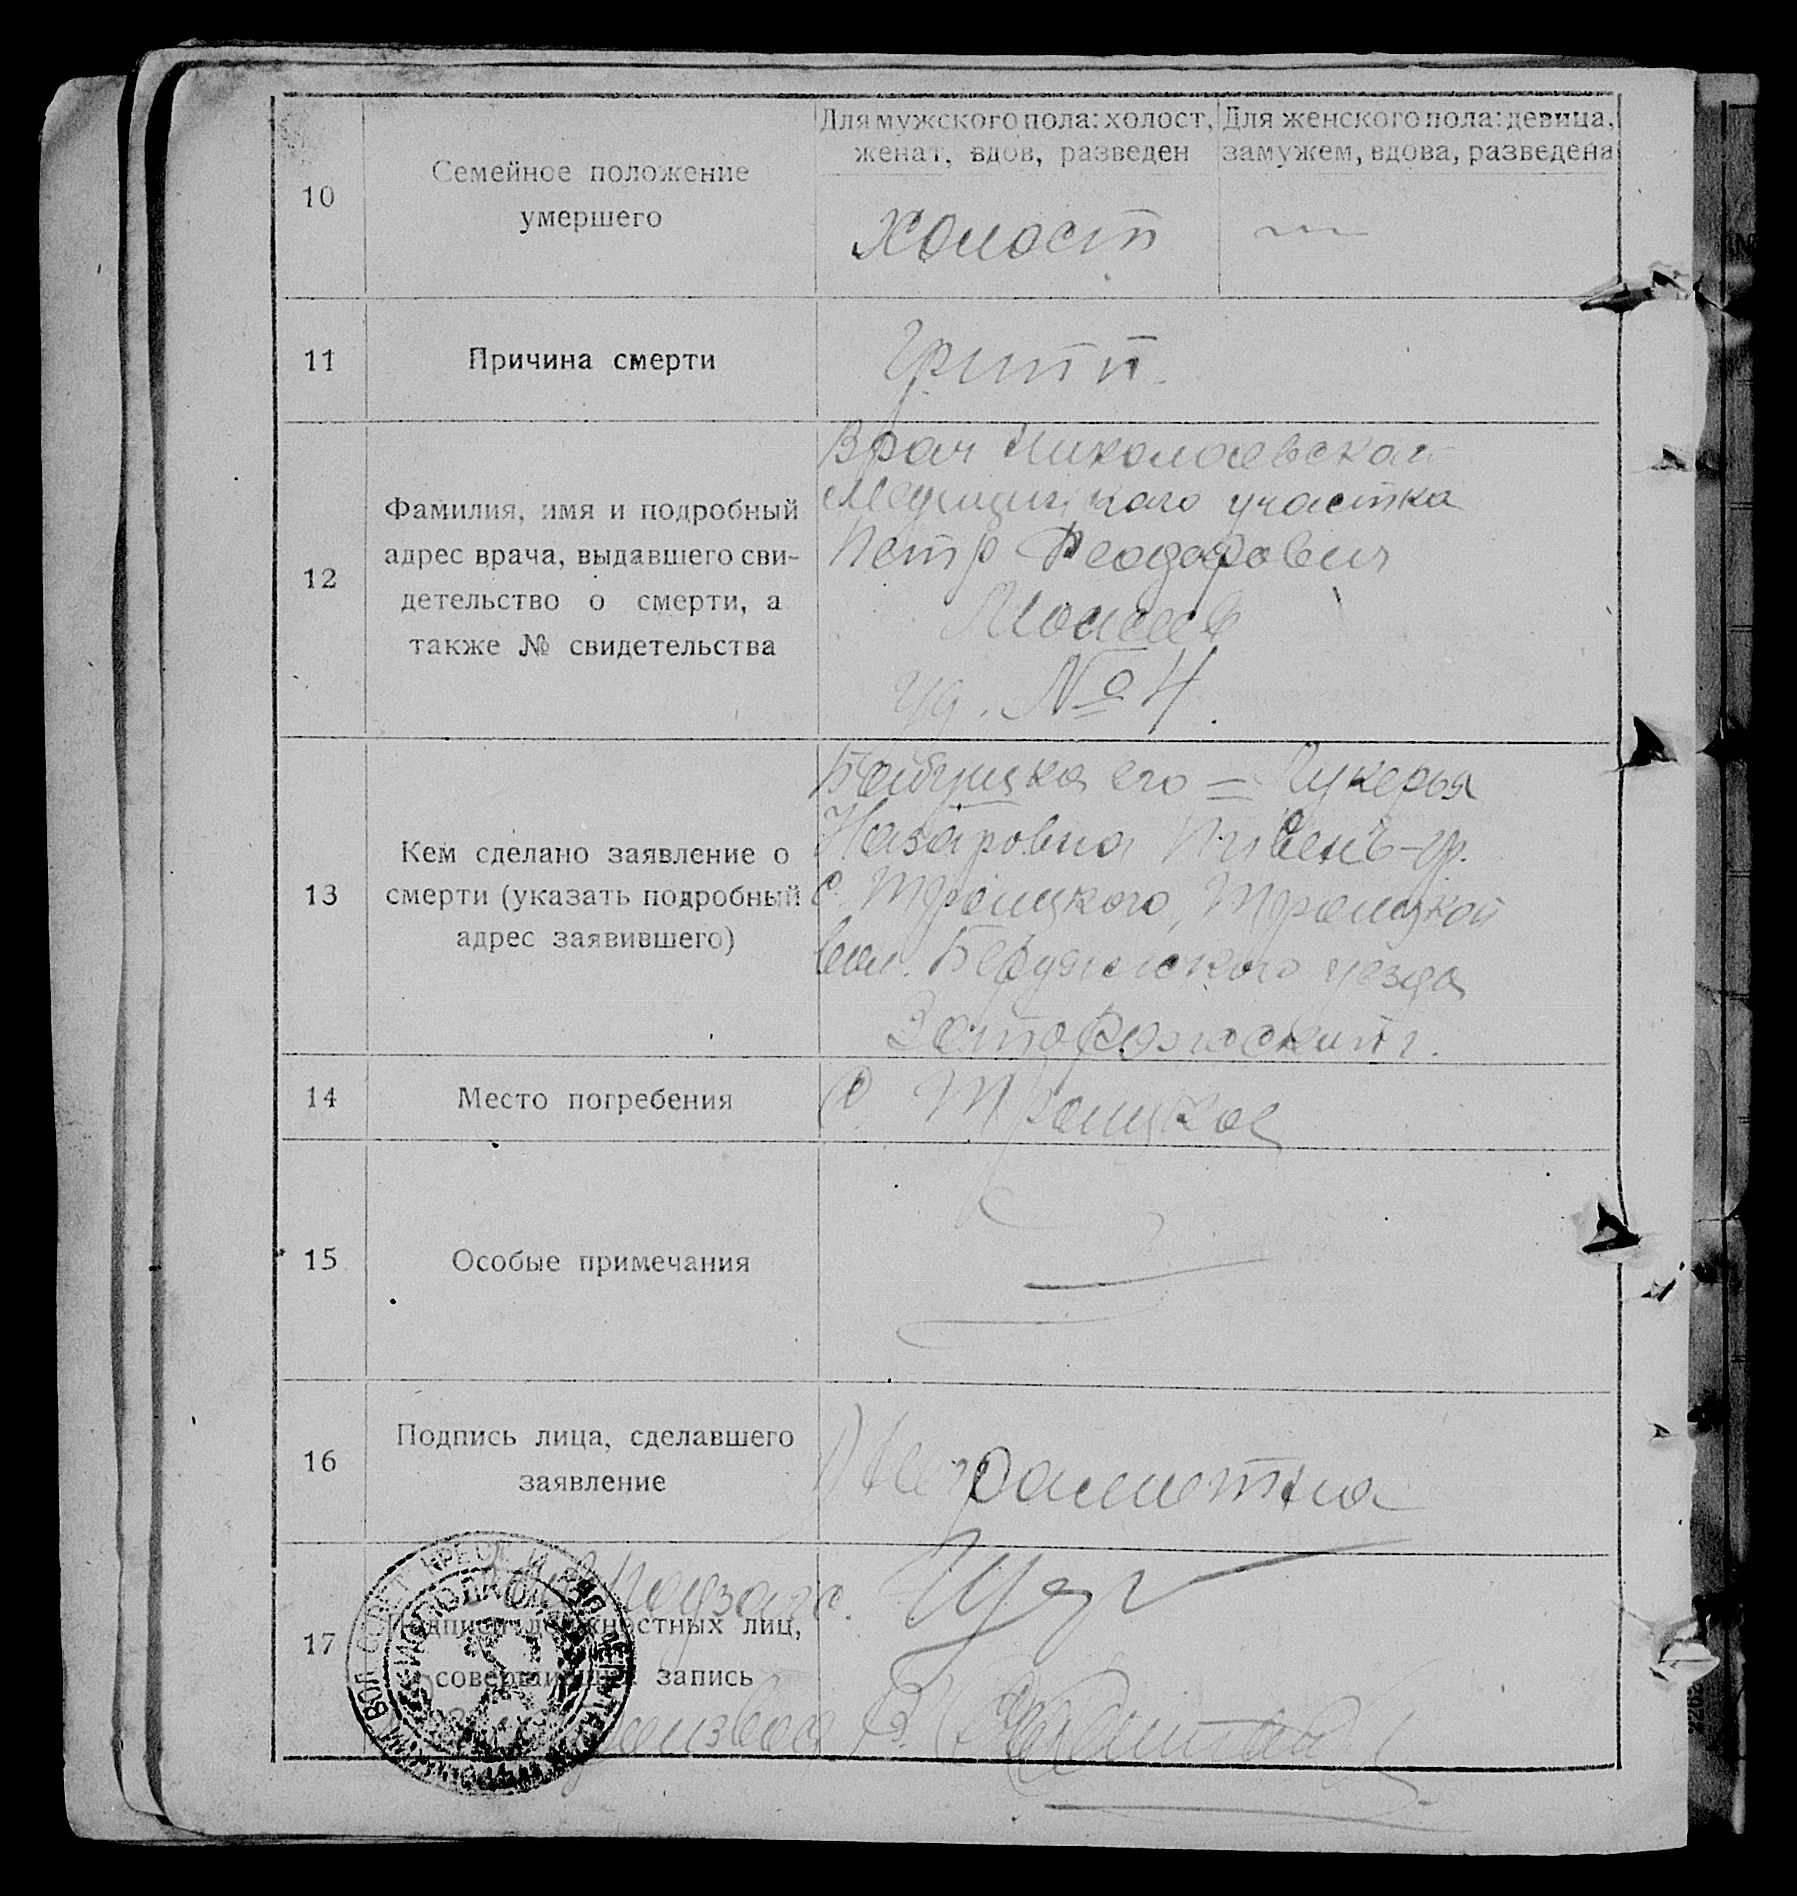 Для мужского пола: холост,
женат, вдов, разведен
Для женского пола: девица,
замужем, вдова, разведена
10
Семейное положение
умершего
холост
11
Причина смерти
Грипп.
12
Фамилия, имя и подробный
адрес врача, выдавшего сви-
детельство о смерти, а
также № свидетельства
Врач Николаевскаго
Медицинского участка
Петр Феодорович
Моисеев
уд. № 4.
13
Кем сделано заявление о
смерти (указать подробный
адрес заявившего)
Бабушка его = Лукерья
Назаровна Пивень – гр.
с. Троицкого, Троицкой
вол. Бердянского уезда
Запорожской г.
14
Место погребения
с. Троицкое
15
Особые примечания
16
Подпись лица, сделавшего
заявление
Неграмотна
17
Подписи должностных лиц,
совершивших запись
Зав. Подзагс.